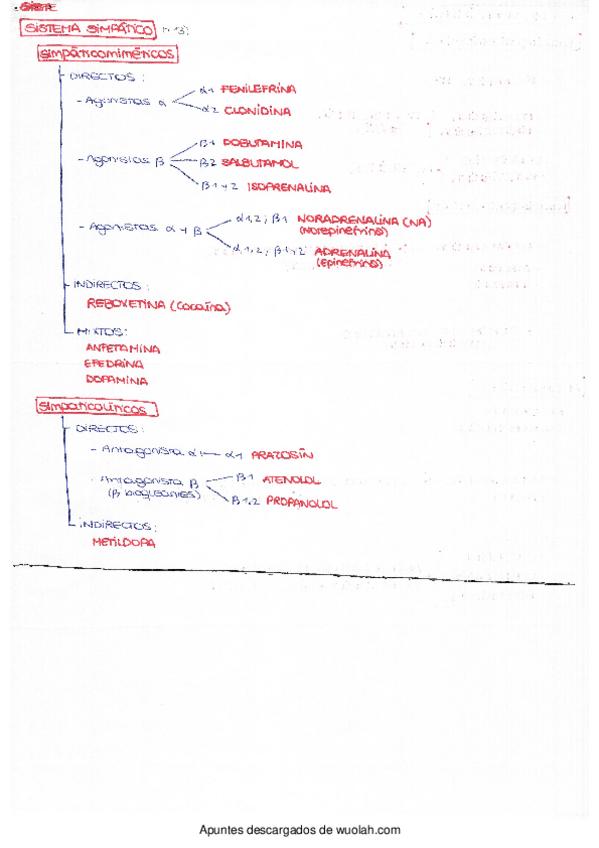 SISTEMA SIMPÁTICO
Simpáticomiméticos
- DIRECTOS:
- Agonistas α
α1 FENILEFRINA
α2 CLONIDINA
- Agonistas β
β1 DOBUTAMINA
β2 SALBUTAMOL
β1 y 2 ISOPRENALINA
- Agonistas α y β
α1,2; β1 NORADRENALINA (NA)
(Norepinefrina)
α1,2; β1 y 2 ADRENALINA
(Epinefrina)
- INDIRECTOS:
REBOXETINA (Cocaína)
- MIXTOS:
ANFETAMINA
EFEDRINA
DOPAMINA
Simpaticolíticos
DIRECTOS:
- Antagonista α1 α1 PRAZOSÍN
- Antagonista β
(β bloqueantes)
β1 ATENOLOL
β1,2 PROPANOLOL
INDIRECTOS:
METILDOPA
Apuntes descargados de wuolah.com